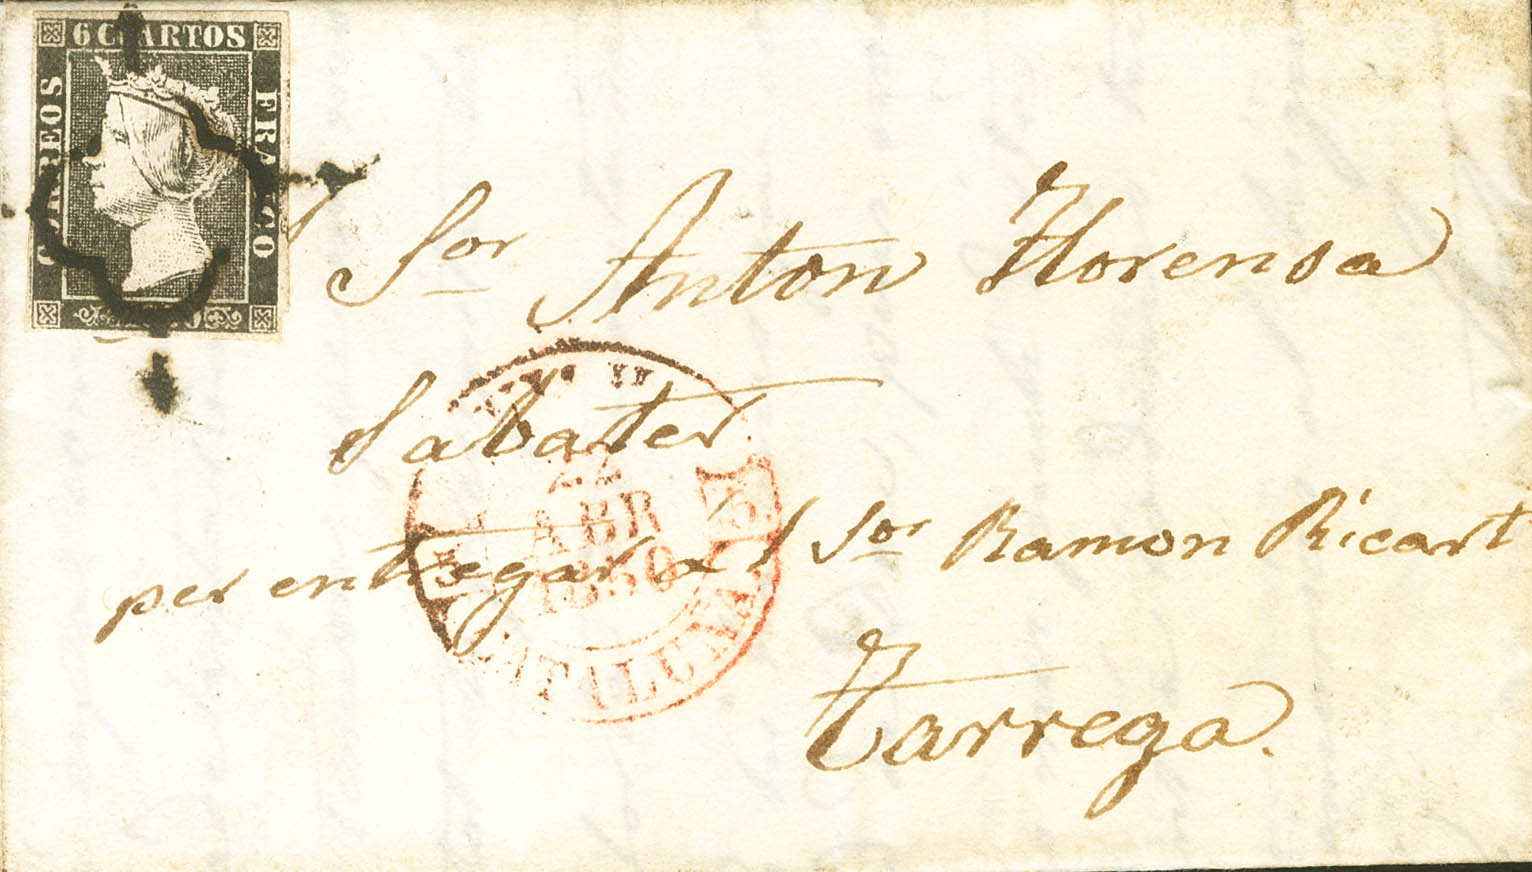 6 CUARTOS
CORREOS
FRANCO
Sor Anton Florensa
Sabater
22
ABR
1850
CATALUÑA
per entregar al Sor Ramon Ricart
Tarrega.